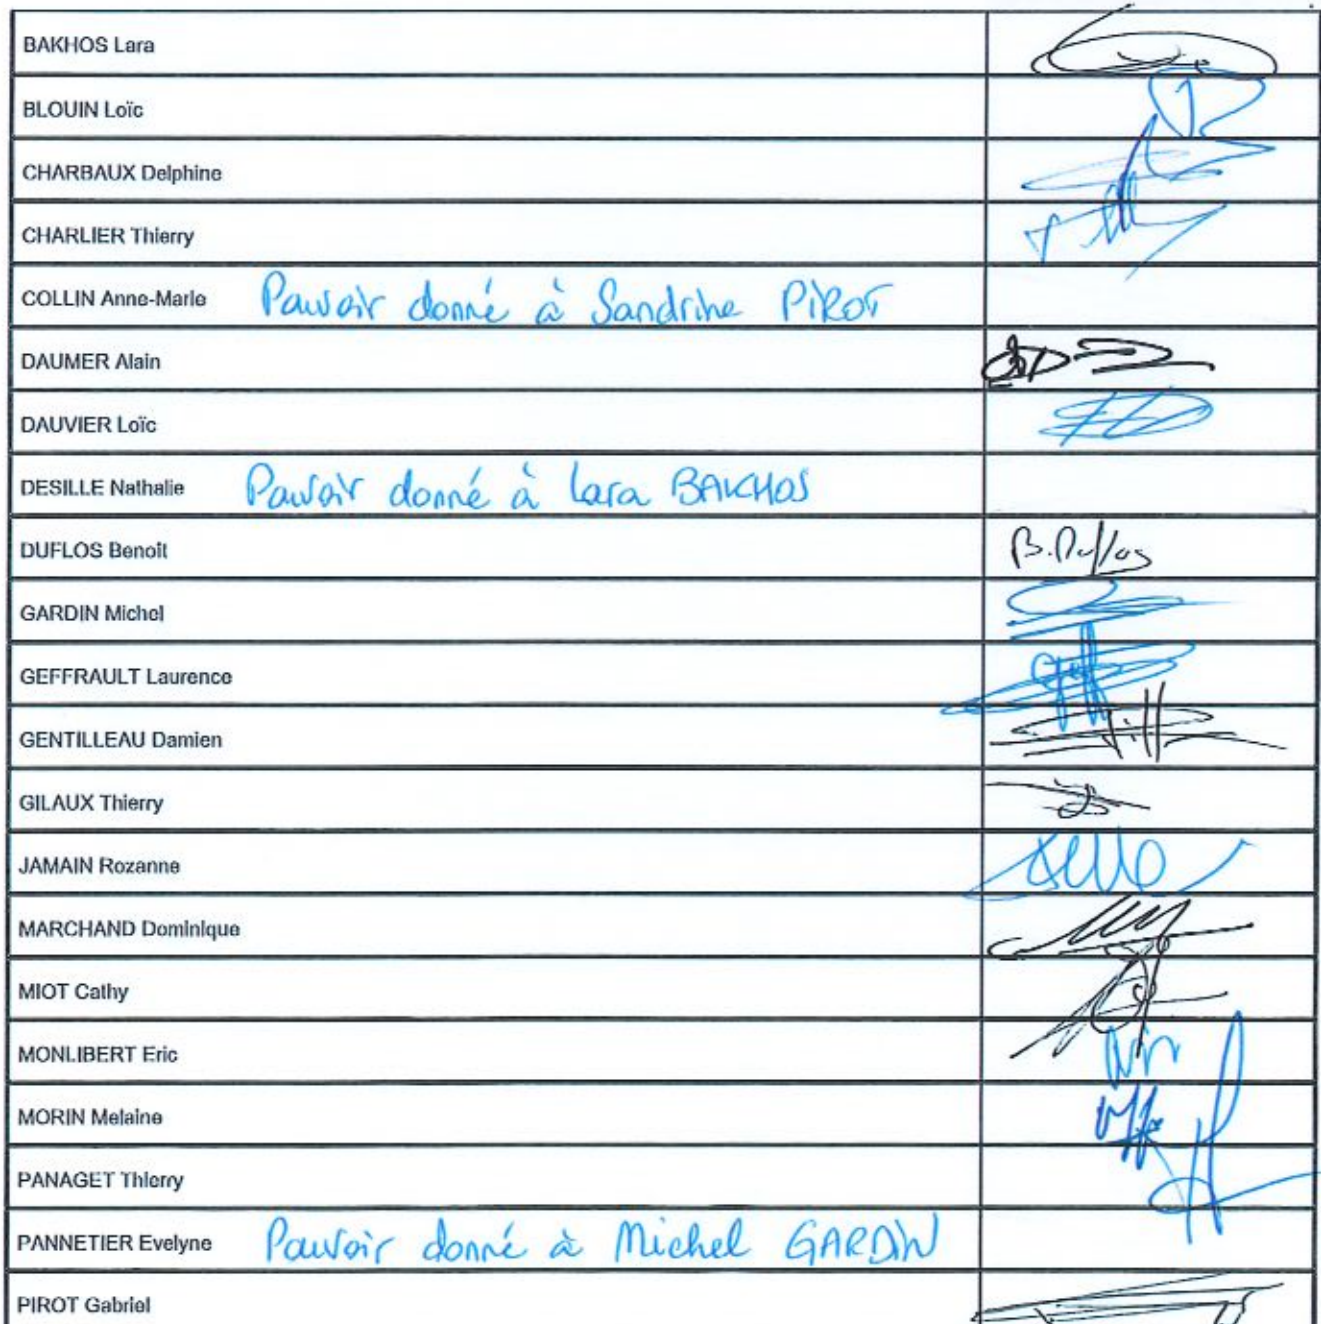 BAKHOS Lara
BLOUIN Loïc
CHARBAUX Delphine
CHARLIER Thierry
COLLIN Anne-Marie Pouvoir donné à Sandrine PIROT
DAUMER Alain
DAUVIER Loïc
DESILLE Nathalie Pouvoir donné à Lara BAKHOS
DUFLOS Benoit B. Duflos
GARDIN Michel
GEFFRAULT Laurence
GENTILLEAU Damien
GILAUX Thierry
JAMAIN Rozanne
MARCHAND Dominique
MIOT Cathy
MONLIBERT Eric
MORIN Melaine
PANAGET Thierry
PANNETIER Evelyne Pouvoir donné à Michel GARDIN
PIROT Gabriel